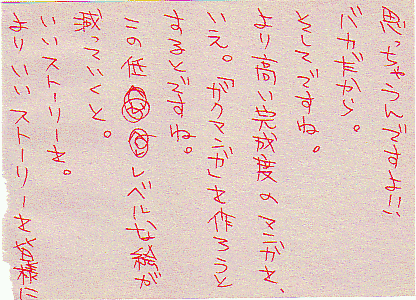 思っちゃうんですよ!!!
バカだから。
そしてですね。
より高い完成度のマンガを、
いえ。「ガクマンガ」を作ろうと
するとですね。
この低レベルな絵が
載っていくと。
いいストーリーを。
よりいいストーリーを皆様に